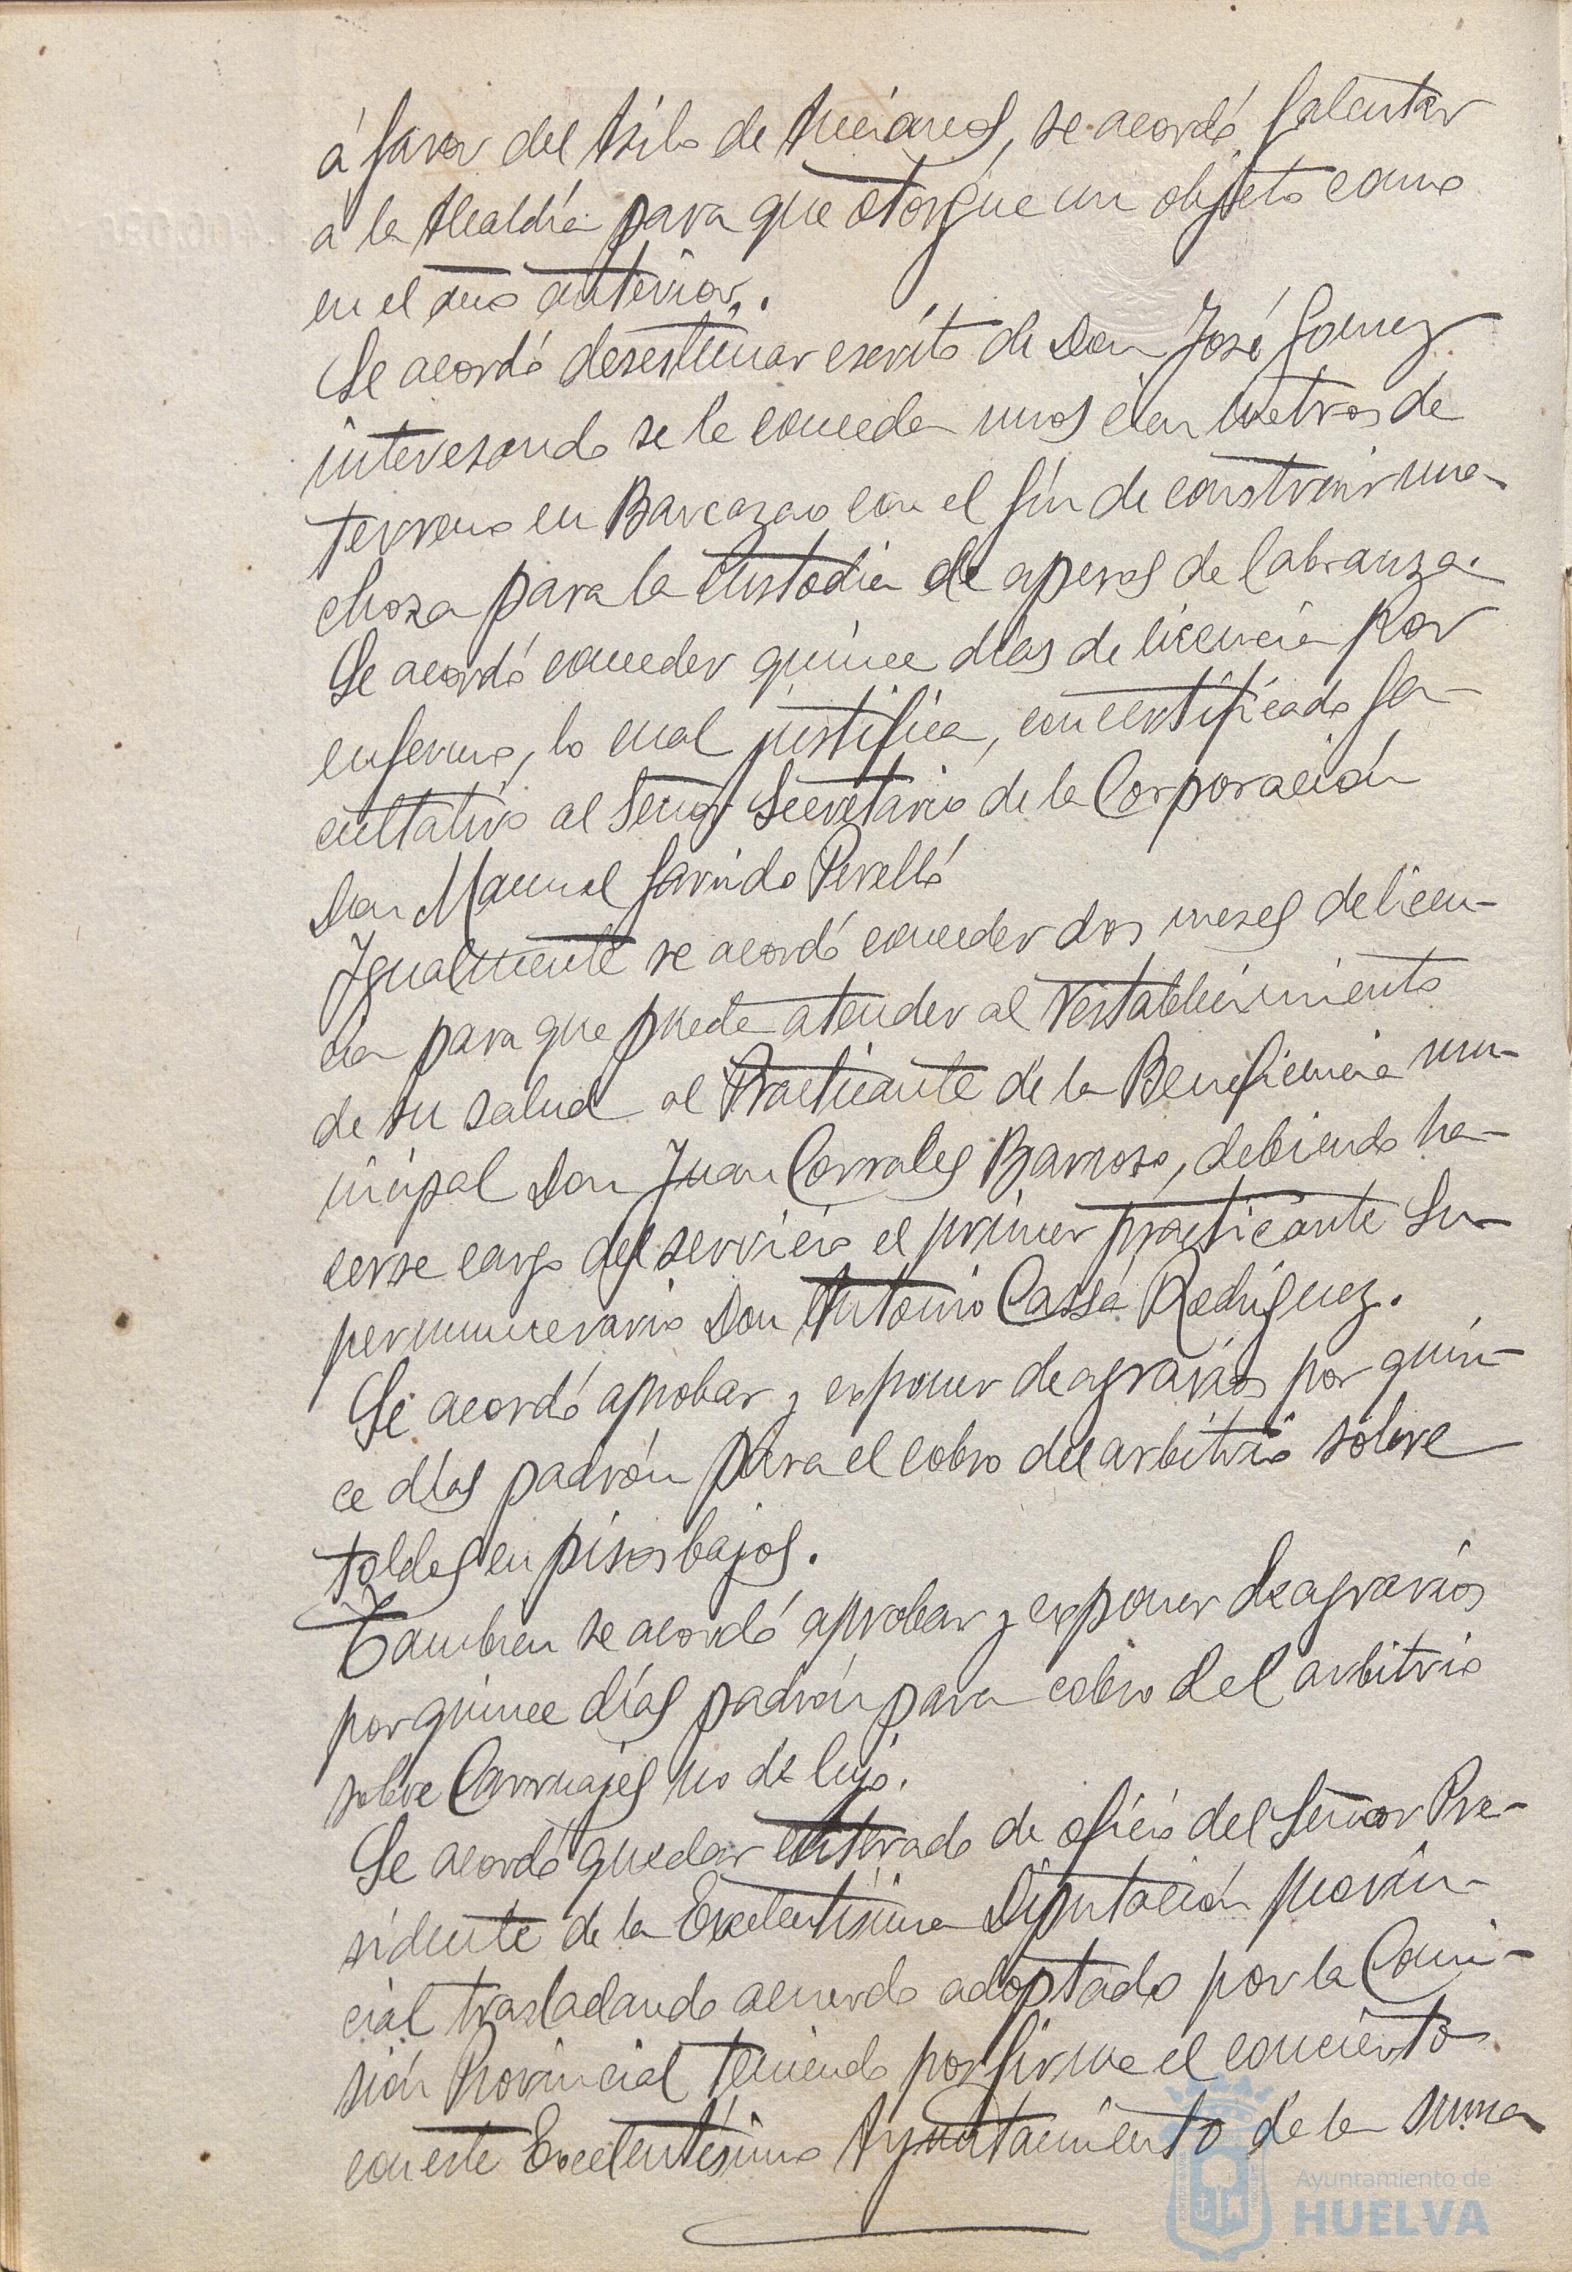 á favor del Asilo de Ancianos, se acordó facultar
a la Alcaldía para que otorgue un objeto como
en el año anterior.
Se acordó desestimar escrito de Don José Gomez
interesando se le conceda unos cien metros de
terreno en Barcazao con el fin de construir una
choza para la custodia de aperos de labranza.
Se acordó conceder quince días de licencia por
enfermo, lo cual justifica, con certificado fa-
cultativo al Señor Secretario de la Corporación
Don Manuel Garrido Perelló
Igualmente se acordó conceder dos meses de licen-
cia para que pueda atender al restablecimiento
de su salud al Practicante de la Beneficencia mu-
nicipal Don Juan Corrales Barroso, debiendo ha-
cerse cargo del servicio el primer practicante Su-
pernumerario Don Antonio Cassá Rodriguez.
Se acordó aprobar y exponer de agravios por quin-
ce días padrón para el cobro del arbitrio sobre
toldos en pisos bajos.
Tambien se acordó aprobar y exponer de agravios
por quince días padrón para cobro del arbitrio
sobre Carruajes no de lujo.
Se acordó quedar enterado de oficio del Señor Pre-
sidente de la Excelentísima Diputación provin-
cial trasladando acuerdo adoptado por la Comi-
sión Provincial teniendo por firme el concierto
con este Excelentísimo Ayuntamiento de la suma
Ayuntamiento de
HUELVA